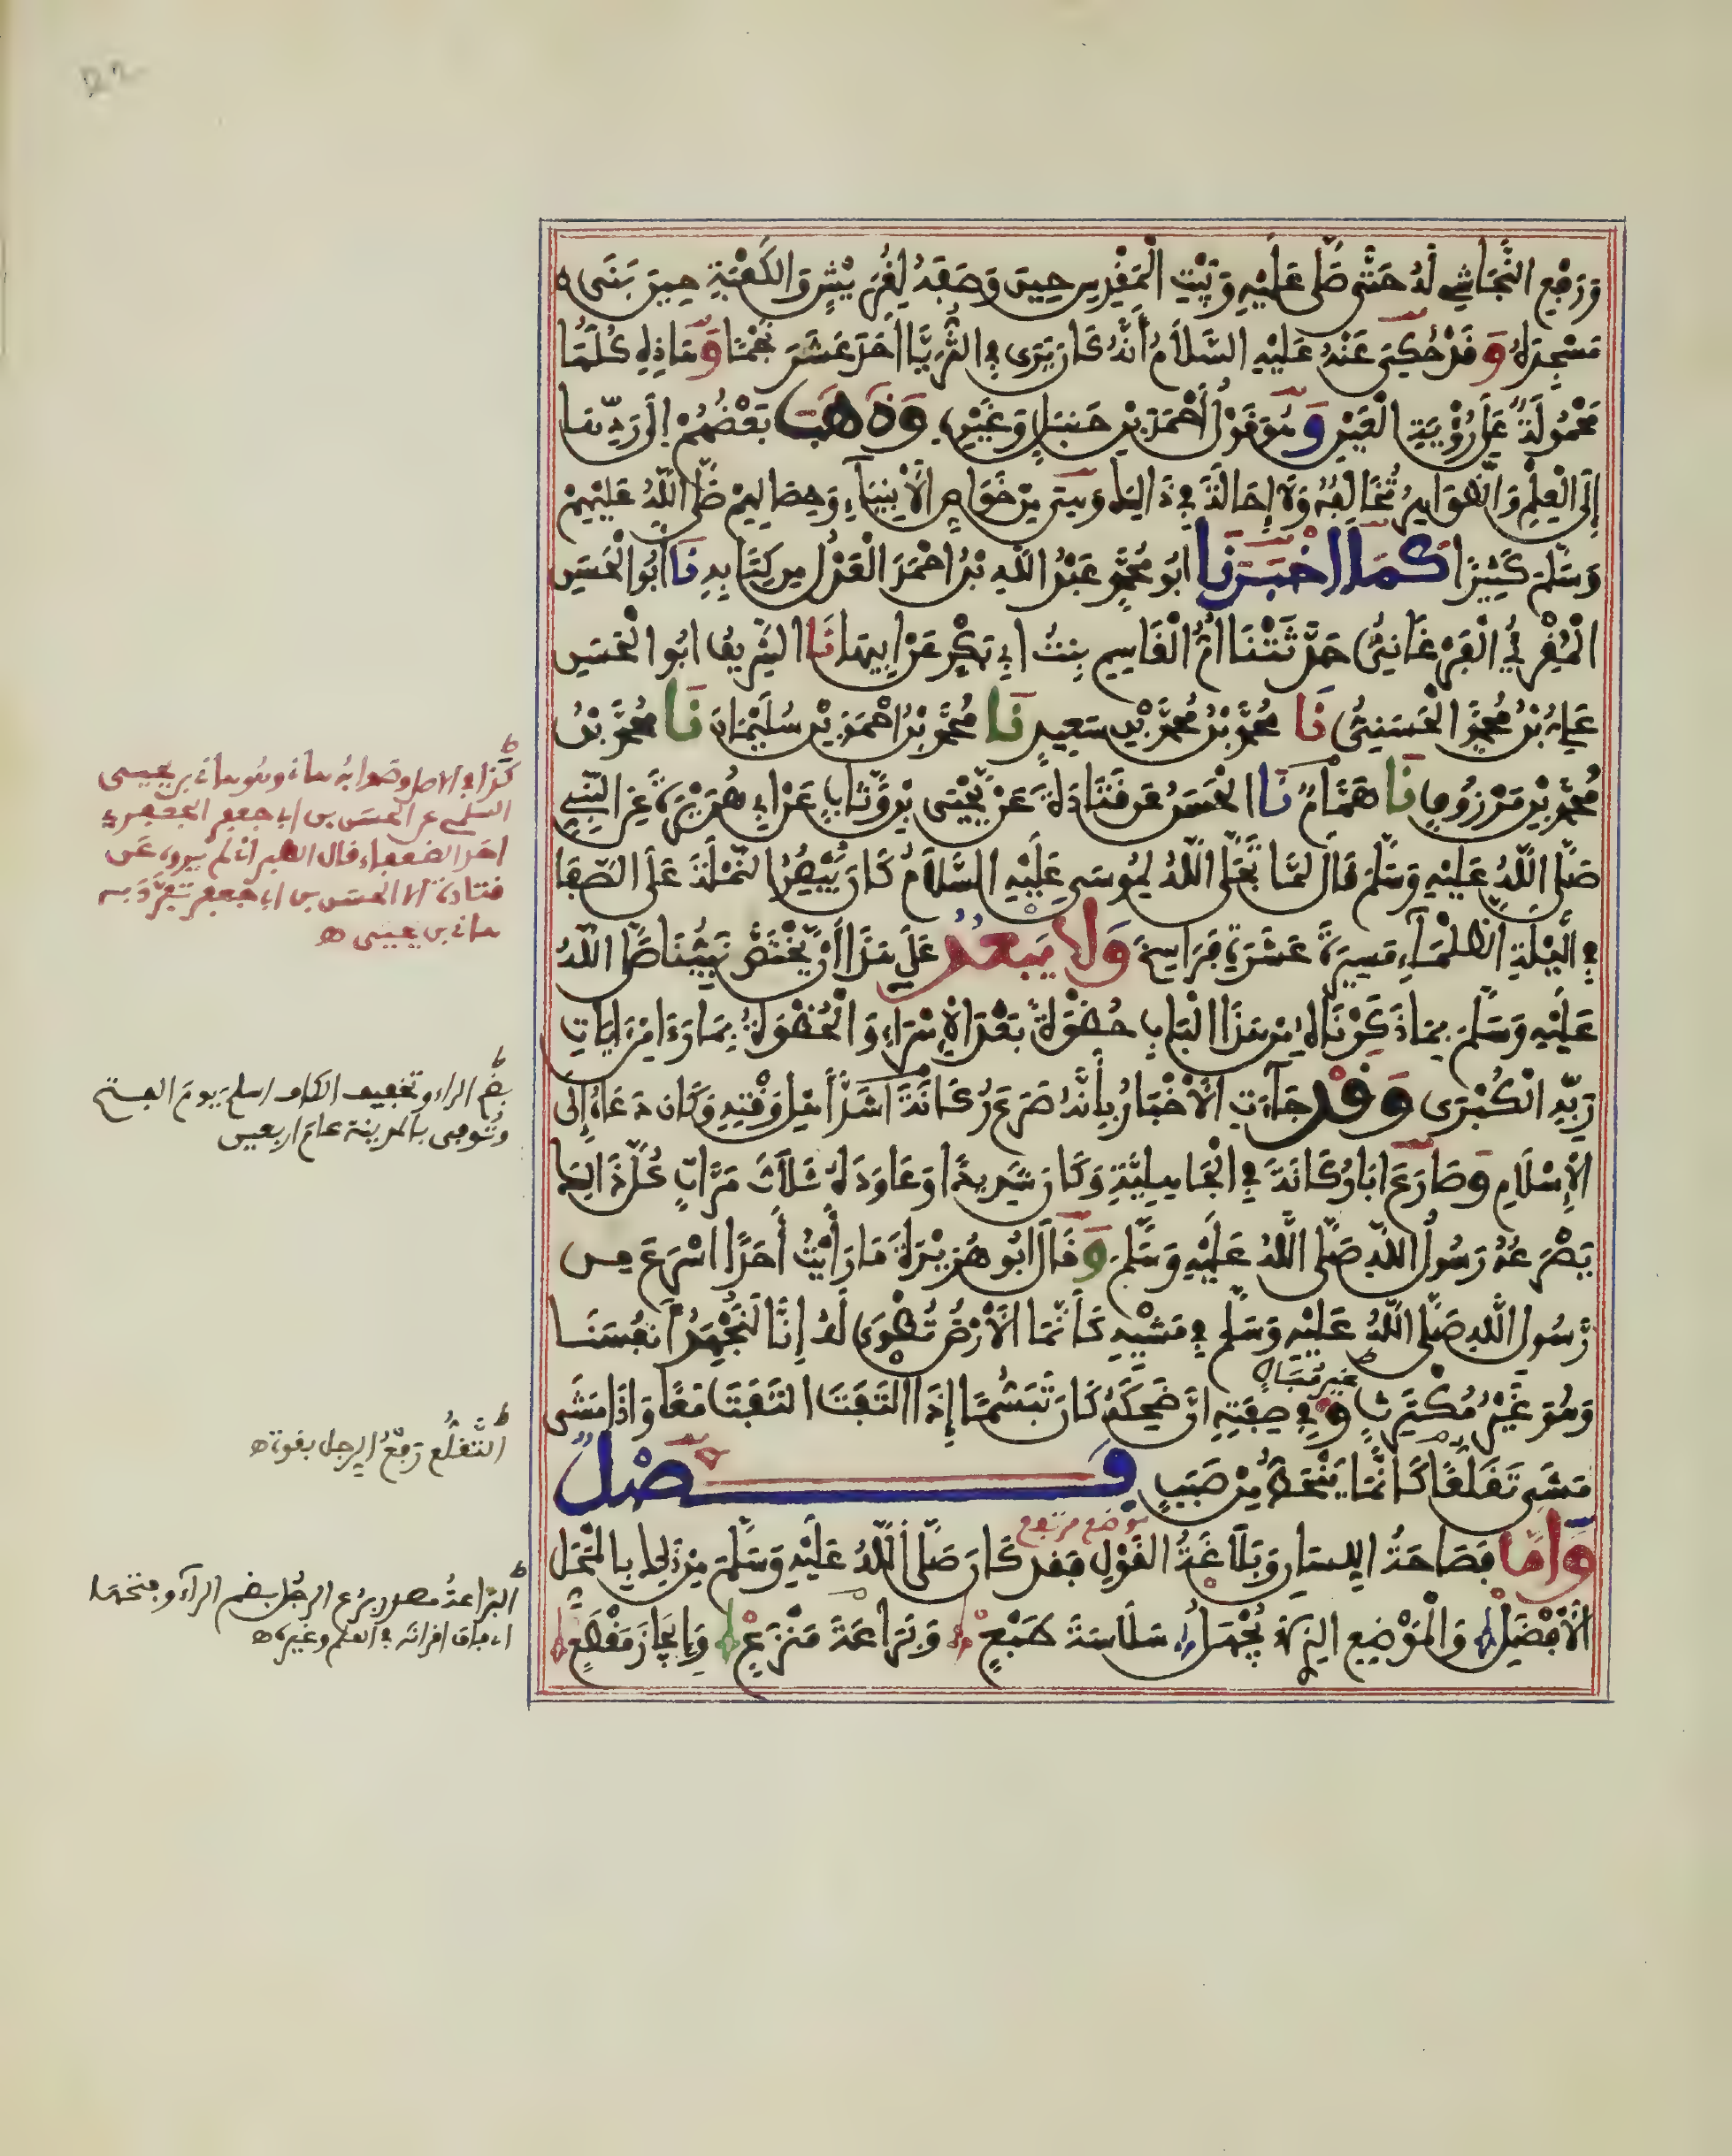 وَرُفِعَ النَّجَاشِي لَهُ حَتَّى صَلَّى عَلَيْهِ وَبَيْتُ الْمَقْدِسِ حِينَ وَصَفَهُ لِقُرَيْشٍ وَالكَعْبَةِ حِينَ بَنَى
مَسْجِدَهُ وَقَدْ حُكِيَ عَنْهُ عَلَيْهِ السَّلَامُ أَنَّهُ كَانَ يَرَى فِي الثُّرَيَّا أَحَدَ عَشَرَ نَجْمًا وَهَاذِهِ كُلُّهَا
مَحْمُولَةٌ عَلَى رُؤْيَةِ الْعَيْنِ وَهُوَ قَوْلُ أَحْمَدَ بْنِ حَنْبَلٍ وَغَيْرِهِ وَذَهَبَ بَعْضُهُمْ إِلَى رَدِّهَا
إِلَى الْعِلْمِ وَالظَّوَاهِرُ تُخَالِفُهُ وَلَا إِحَالَةَ فِي ذَالِكَ وَهِيَ مِنْ خَوَاصِّ الْأَنْبِيَاءِ وَخِصَالِهِمْ صَلَّى اللَّهُ عَلَيْهِمْ
وَسَلَّمَ كَثِيرًا كَمَا اخْبَرَنَا ابُو مُحَمَّدٍ عَبْدُ اللَّهِ بْنُ احْمَدَ الْعَدْلُ مِن كِتَابِهِ نَا ابُو الْحَسَنِ
الْمُقْرِيُّ الْفَرْغَانِيُّ حَدَّثَتْنَا أُمُّ الْقَاسِمِ بِنْتُ ابِي بَكْرٍ عَنْ ابِيهَا نَا الشَّرِيفُ ابُو الْحَسَنِ
عَلِيُّ بْنُ مُحَمَّدٍ الْحَسَنِيُّ نَا مُحَمَّدُ بْنُ مُحَمَّدِ بْنِ سَعِيدٍ نَا مُحَمَّدُ بْنُ احْمَدَ بْنِ سُلَيْمَانَ نَا مُحَمَّدُ بْنُ
مُحَمَّدِ بْنِ مَرْزُوقٍ نَا هَمَّامٌ نَا الْحَسَنُ عَن قَتَادَةَ عَنْ يَحْيَى بْنِ وَثَّابٍ عَنْ ابِي هُرَيْرَةَ عَنِ النَّبِيِّ
صَلَّى اللَّهُ عَلَيْهِ وَسَلَّمَ قَالَ لَمَّا تَجَلَّى اللَّهُ لِمُوسَى عَلَيْهِ السَّلَامُ كَانَ يُبْصِرُ النَّمْلَةَ عَلَى الصَّفَا
فِي الَّيْلَةِ الظَّلْمَاءِ مَسِيرَةَ عَشَرَةِ فَرَاسِخَ وَلَا يَبْعُدُ عَلَى هَذَا أَنْ يَّخْتَصَّ نَبِيُّنَا صَلَّى اللَّهُ
عَلَيْهِ وَسَلَّمَ بِمَا ذَكَرْنَاهُ مِنْ هَذَا الْبَابِ حُظْوَةً بَعْدَ الْإِسْرَاءِ وَالْحُظْوَةُ بِمَا رَءَا مِنَ ايَاتِ
رَبِّهِ الْكُبْرَى وَقَدْ جَاءَتِ الْأَخْبَارُ بِأَنَّهُ صَرَعَ رُكَانَةَ اشَدَّ أَهْلِ وَقْتِهِ وَكَانَ دَعَاهُ إِلَى
الْإِسْلَامِ وَصَارَعَ ابَا رُكَانَةَ فِي الْجَاهِلِيَّةِ وَكَانَ شَدِيدًا وَعَاوَدَهُ ثَلَاثَ مَرَّاتٍ كُلُّ ذَالِكَ
يَصْرَعُهُ رَسُولُ اللَّهِ صَلَّى اللَّهُ عَلَيْهِ وَسَلَّمَ وَقَالَ ابُو هُرَيْرَةَ مَا رَأَيْتُ أَحَدًا اسْرَعَ مِن
رَّسُولِ اللَّهِ صَلَّى اللَّهُ عَلَيْهِ وَسَلَّم فِي مَشْيِهِ كَأَنَّمَا الْأَرْضُ تُطْوَى لَهُ إِنَّا لَنُجْهِدُ أَنفُسَنَا
غير مُبَالٍ
وَهُوَ غَيْرُ مُكْتَرِثٍ وَفِي صِفَتِهِ انَّ ضَحِكَهُ كَانَ تَبَسُّمًا إِذَا الْتَفَتَ الْتَفَتَ مَعًا وَاذَا مَشَى
مَشَى تَقَلُّعًا كَأَنَّمَا يَنْحَطُّ مِنْ صَبَبٍ فَصْلٌ
وَأَمَّا فَصَاحَةُ اللِّسَانِ وَبَلَاغَةُ الْقَوْلِ فَقَد كَانَ صَلَّى اللَّهُ عَلَيْهِ وَسَلَّمَ مِنْ ذَلِكَ بِالْمَحَلِّ
موضع مرتفع
الْأَفْضَلِ وَالْمَوْضِعِ الذِي لَا يُجْهَلُ سَلَاسَةَ طَبْعٍ وَبَرَاعَةَ مَنْزَعٍ وَإِيجَازَ مَقْطَعٍ
كذا في الاصل وصوابه هانئ وهو هانئ بن يحيى
السلمي عن الحسن بن ابي جعفر الجعفري
احد الضعفاء قال الطبراني لم يروه عن
قتادة الا الحسن بن ابي جعفر تفرَّدَ به
هانئ بن يحيى
بضم الراء وتخفيف الكاف اسلم يوم الفتح
وتُوفي بالمدينة عام اربعين
التَّقَلُّع رَفْعُ الرجل بقوة
البراعةُ مصدر بَرُع الرجُل بضم الراء وفتحها
اي فاق اقرانه في العلم وغيره